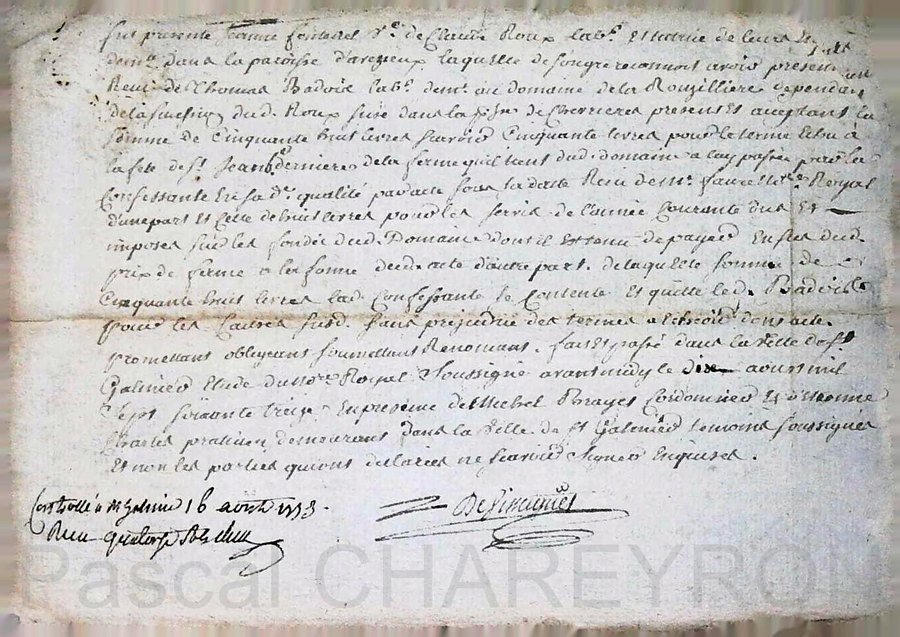 fut presente Jeanne fontanel v.e de Claude Roux lab.r et tutrice de leurs
dem.te dans la paroisse d'aveyeux laquelle de son gre reconnoit avoir presentem
Reçu de Thomas Badoil lab.r dem.t au domaine de la Rouzilliere dependant
de la sucession dud. Roux situé dans la p.sse de Chevrieres present et acceptant la
somme de Cinquante huit livres sçavoir Cinquante livres pour le terme echu a
la fete de S.t Jean B. derniere de la ferme qu'il tient dud. domaine a luy passée par la
Confessante en sa d. qualité par acte sous sa datte Reçu de M.e faure no.re Royal
d'une part et celle de huit livres pour les servis de l'année Courante dus et
imposes sur les fonds dud. Domaine dont il est tenu de payer en sus dud.
prix de ferme a la forme dud. acte d'autre part. de laquelle somme de
Cinquante huit livres lad. Confessante se Contente et quitte led. Badoil
pour les Causes susd. sans prejudice des termes a echeoir dont acte
promettant obligeant soumettant Renonçant. fait et passé dans la ville de S.t
Galmier Etude du no.re Royal Soussigné avant midy le dix aoust mil
Sept soixante treize en presence de Michel Brayes Cordonnier et d'etienne
Charles praticien demeurants dans la ville de S.t Galmier temoins soussignés
et non les parties qui ont declarées ne sçavoir signer enquises.
Controllé a St Galmier 16 aoust 1773.
Reçu quatorze sols
Desimagnes
Pascal CHAREYRON